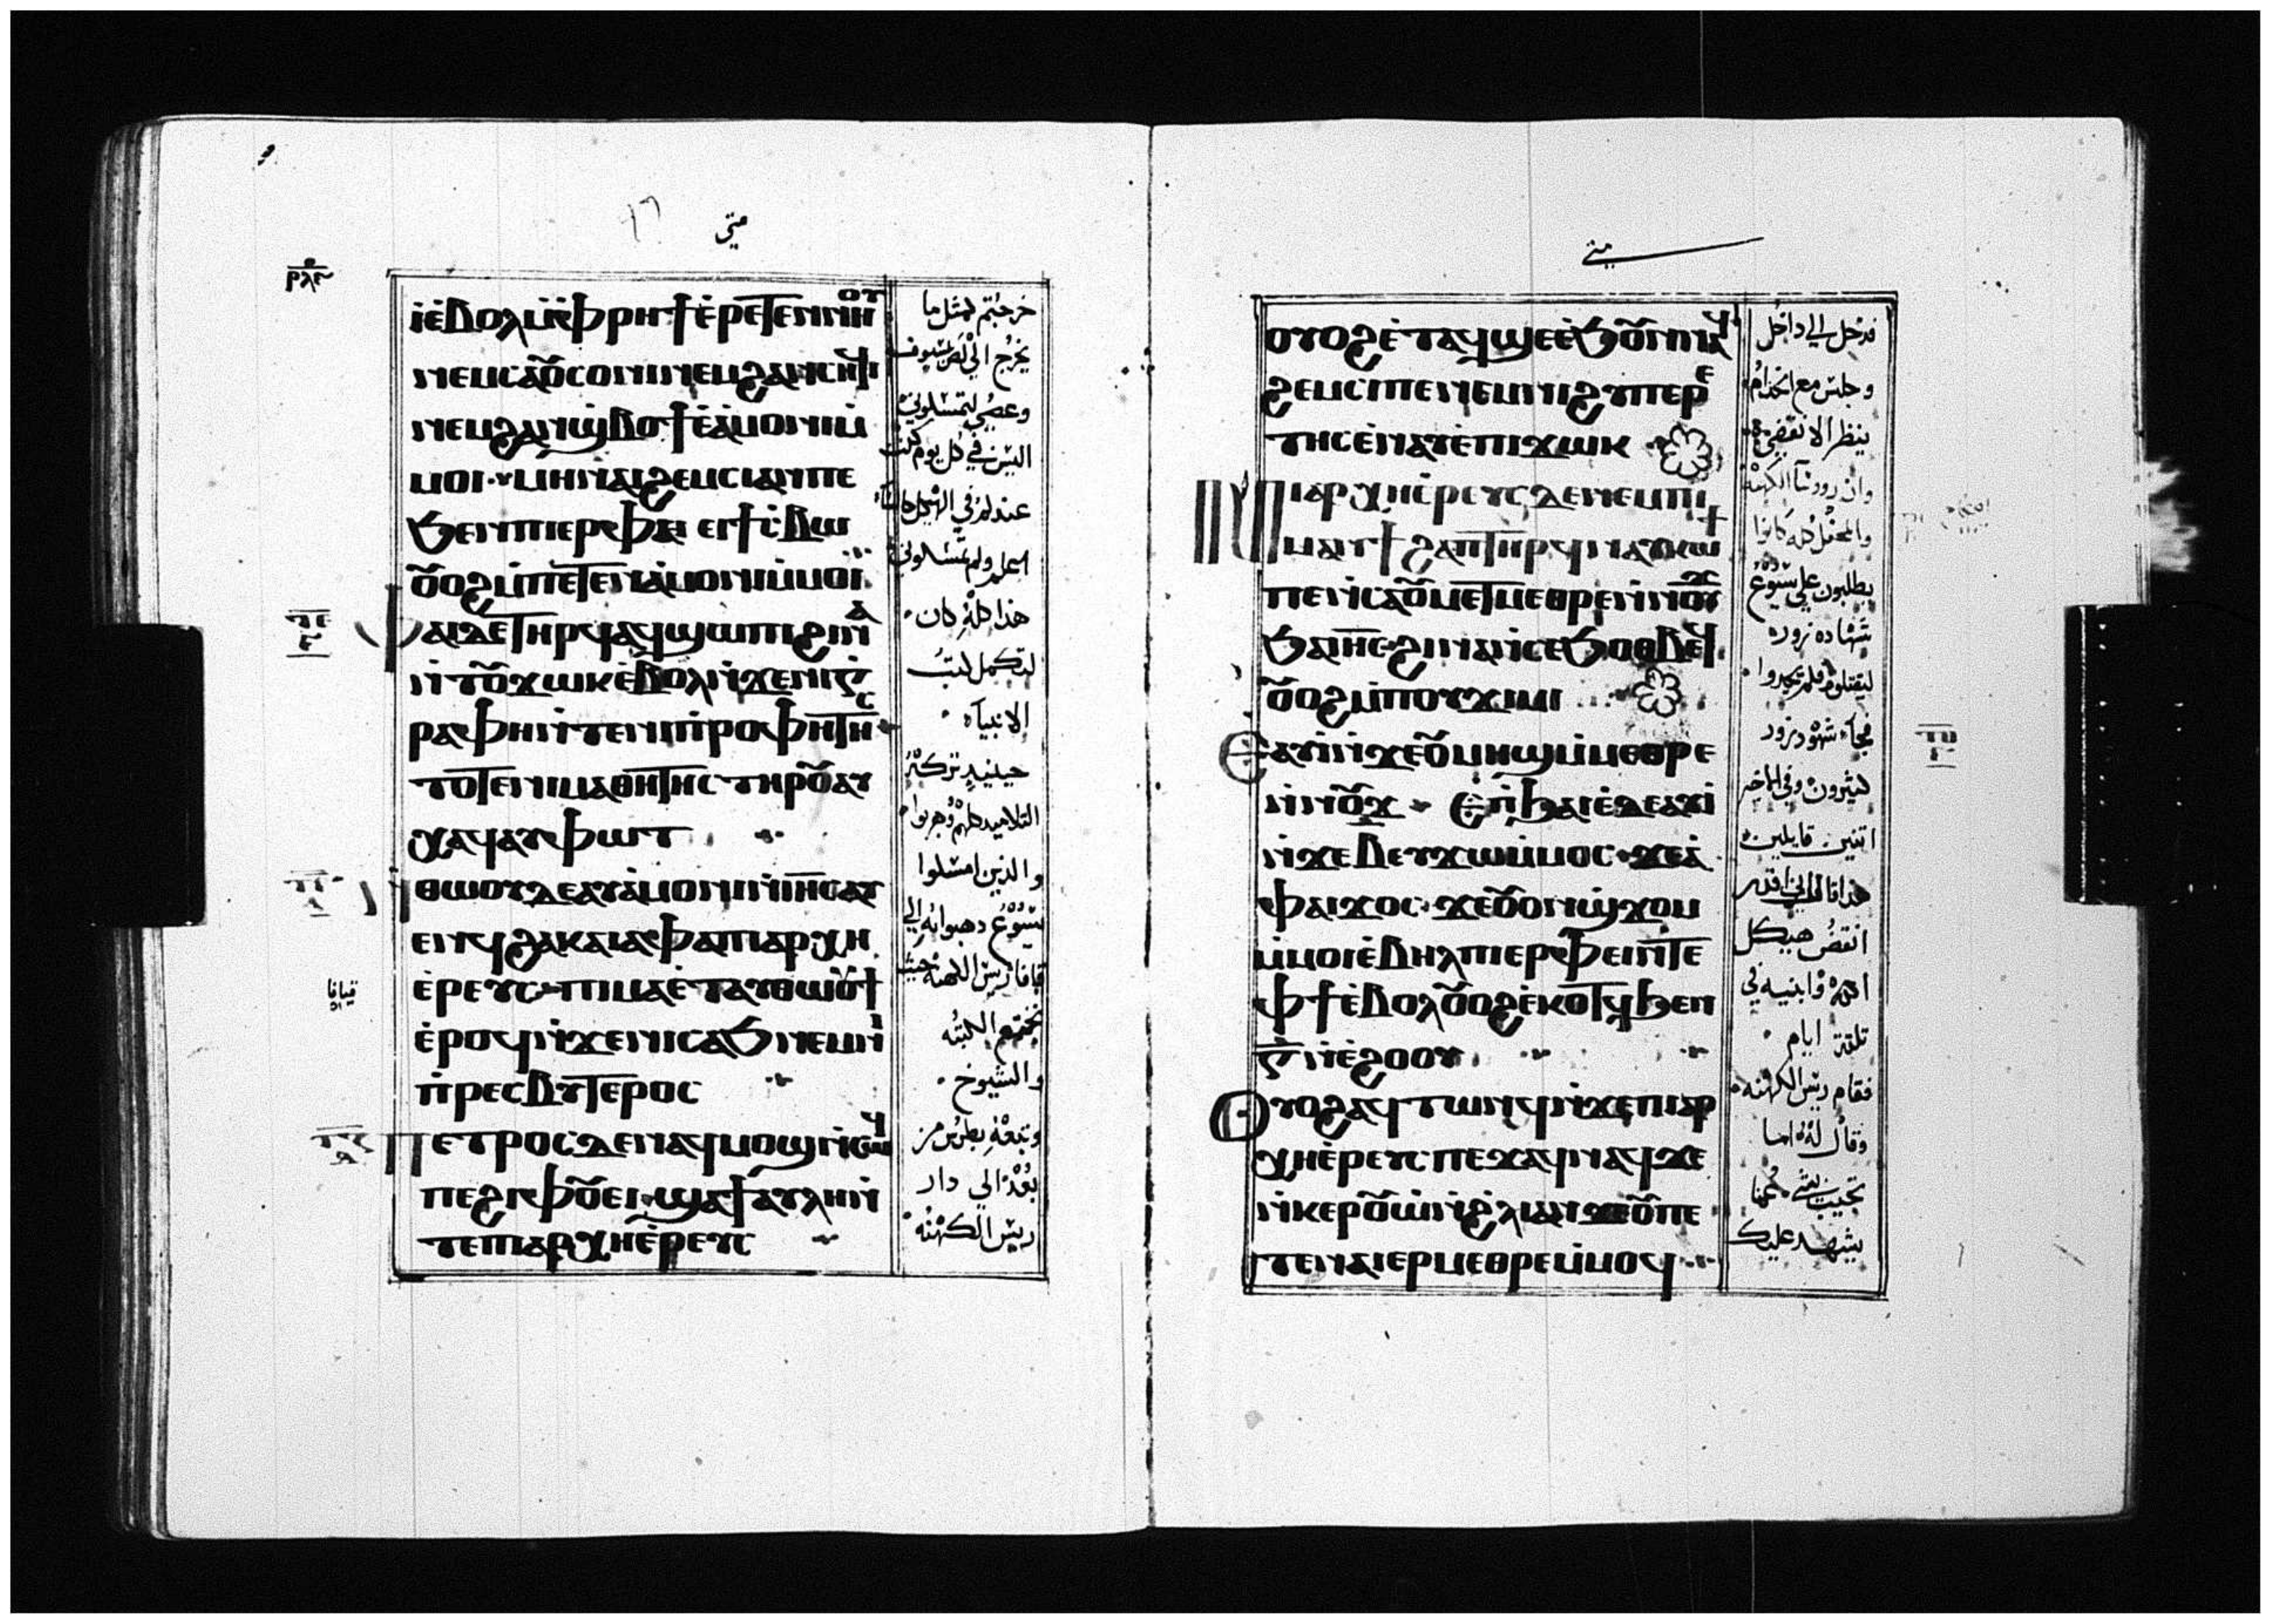 متى
ⲓⲉ̀ⲃⲟⲗ ⲙ̀ⲫⲣⲏϯ ⲉ̀ⲣⲉⲧⲉⲛⲛⲏⲟⲩ
ⲛⲉⲙ ⲥⲁⲟⲩⲥⲟⲛⲓ ⲛⲉⲙ ϩⲁⲛⲥⲏϥⲓ
ⲛⲉⲙ ϩⲁⲛϣ̀ⲃⲟϯ ⲉ̀ⲁ̀ⲙⲟⲛⲓ ⲙ̀
ⲙⲟⲓ ⲙⲏ ⲛⲁⲓϩⲉⲙⲥⲓ ⲁⲛ ⲡⲉ
ϧⲉⲛ ⲡⲓⲉⲣⲫⲉⲓ ⲉⲓϯⲥ̀ⲃⲱ
ⲟⲩⲟϩ ⲙ̀ⲡⲉⲧⲉⲛⲁ̀ⲙⲟⲛⲓ ⲙ̀ⲙⲟⲓ
ⲫⲁⲓ ⲇⲉ ⲧⲏⲣϥ ⲁϥϣⲱⲡⲓ ϩⲓⲛⲁ
ⲛ̀ⲧⲟⲩϫⲱⲕ ⲉ̀ⲃⲟⲗ ⲛ̀ϫⲉ ⲛⲓⲅ̀
ⲣⲁⲫⲏ ⲛ̀ⲧⲉ ⲛⲓⲡ̀ⲣⲟⲫⲏⲧⲏⲥ
ⲧⲟⲧⲉ ⲛⲓⲙⲁⲑⲏⲧⲏⲥ ⲧⲏⲣⲟⲩ ⲁⲩ
ⲭⲁϥ ⲁⲩⲫⲱⲧ
ⲛ̀ⲑⲱⲟⲩ ⲇⲉ ⲁⲩⲁ̀ⲙⲟⲛⲓ ⲛ̀ⲓⲏⲥ ⲁⲩ
ⲉⲛϥ ϩⲁ ⲕⲁⲓⲁⲫⲁ ⲡⲓⲁⲣⲭⲏ
ⲉ̀ⲣⲉⲩⲥ ⲡⲓⲙⲁ ⲉ̀ⲧⲁⲩⲑⲱⲟⲩϯ
ⲉ̀ⲣⲟϥ ⲛ̀ϫⲉ ⲛⲓⲥⲁϧ ⲛⲉⲙ ⲛⲓ
ⲡ̀ⲣⲉⲥⲃⲩⲧⲉⲣⲟⲥ
ⲡⲉⲧⲣⲟⲥ ⲇⲉ ⲛⲁϥⲙⲟϣⲓ ⲛ̀ⲥⲱϥ
ⲡⲉ ϩⲓ ⲫⲟⲩⲉⲓ ϣⲁ ϯⲁⲩⲗⲏ ⲛ̀
ⲧⲉ ⲡⲓⲁⲣⲭⲏⲉ̀ⲣⲉⲩⲥ
خرجتم لمثل ما
يخرج الى لص بسيوف
وعصي لتمسكوني
اليس في كل يوم كنت
عندكم في الهيكل جالسا
اعلم ولم تمسكوني
هذا كله كان
لتكمل كتب
الانبياء
حينيد تركه
التلاميد كلهم وهربوا
والذين امسكوا
يسوع دهبوا به الى
قيافا ريس الكهنه حيث
تجتمع الكتبه
والشيوخ
وتبعه بطرس من
بعد الي دار
ريس الكهنه
قيافا
متى
ⲟⲩⲟϩ ⲉ̀ⲧⲁϥϣⲉ ⲉ̀ϧⲟⲩⲛ ⲛⲁϥ
ϩⲉⲙⲥⲓ ⲡⲉ ⲛⲉⲙ ⲛⲓϩⲩⲡⲉⲣⲉ
ⲧⲏⲥ ⲉ̀ⲛⲁⲩ ⲉ̀ⲡⲓϫⲱⲕ
ⲛⲓⲁⲣⲭⲏⲉ̀ⲣⲉⲩⲥ ⲇⲉ ⲛⲉⲙ ⲡⲓ
ⲙⲁⲛϯϩⲁⲡ ⲧⲏⲣϥ ⲛⲁⲩⲕⲱϯ
ⲡⲉ ⲛ̀ⲥⲁ ⲟⲩⲙⲉⲧⲙⲉⲑⲣⲉ ⲛ̀ⲛⲟⲩϫ
ϧⲁ ⲓⲏⲥ ϩⲓⲛⲁ ⲛ̀ⲥⲉϧⲟⲑⲃⲉϥ
ⲟⲩⲟϩ ⲙ̀ⲡⲟⲩϫⲓⲙⲓ
ⲉⲁⲩⲓ̀ ⲛ̀ϫⲉ ⲟⲩⲙⲏϣ ⲙ̀ⲙⲉⲑⲣⲉ
ⲛ̀ⲛⲟⲩϫ ⲉ̀ⲡ̀ϧⲁⲉ̀ ⲇⲉ ⲁⲩⲓ̀
ⲛ̀ϫⲉ ⲃ ⲉⲩϫⲱ ⲙ̀ⲙⲟⲥ ϫⲉ ⲁ̀
ⲫⲁⲓ ϫⲟⲥ ϫⲉ ⲟⲩⲟⲛϣϫⲟⲙ
ⲙ̀ⲙⲟⲓ ⲉ̀ⲃⲏⲗ ⲡⲓⲉⲣⲫⲉⲓ ⲛ̀ⲧⲉ
ⲫϯ ⲉ̀ⲃⲟⲗ ⲟⲩⲟϩ ⲉ̀ⲕⲟⲧϥ ϧⲉⲛ
ⲅ̅ ⲛ̀ⲉ̀ϩⲟⲟⲩ
ⲟⲩⲟϩ ⲁϥⲧⲱⲛϥ ⲛ̀ϫⲉ ⲡⲓⲁⲣ
ⲭⲏⲉ̀ⲣⲉⲩⲥ ⲡⲉϫⲁϥ ⲛⲁϥ ϫⲉ
ⲛ̀ⲕⲉⲣⲟⲩⲱ̀ ⲛ̀ϩ̀ⲗⲓ ⲁⲛ ϫⲉ ⲟⲩ ⲡⲉ
ⲧⲉ ⲛⲁⲓ ⲉⲣⲙⲉⲑⲣⲉ ⲙ̀ⲙⲟϥ
فدخل الي داخل
وجلس مع الخدام
ينظر الانقضي
وان روسا الكهنه
والمحفل كله كانوا
يطلبون على يسوع
شهاده زور
ليقتلوه فلم يجدوا
فجاء شهود زور
كثيرون وفي الاخر
اتنين قايلين
هذا قال اني اقدر
انقض هيكل
الله وابنيه في
تلتة ايام
فقام ريس الكهنه
وقال له اما
تجيب بشي عما
يشهد عليك